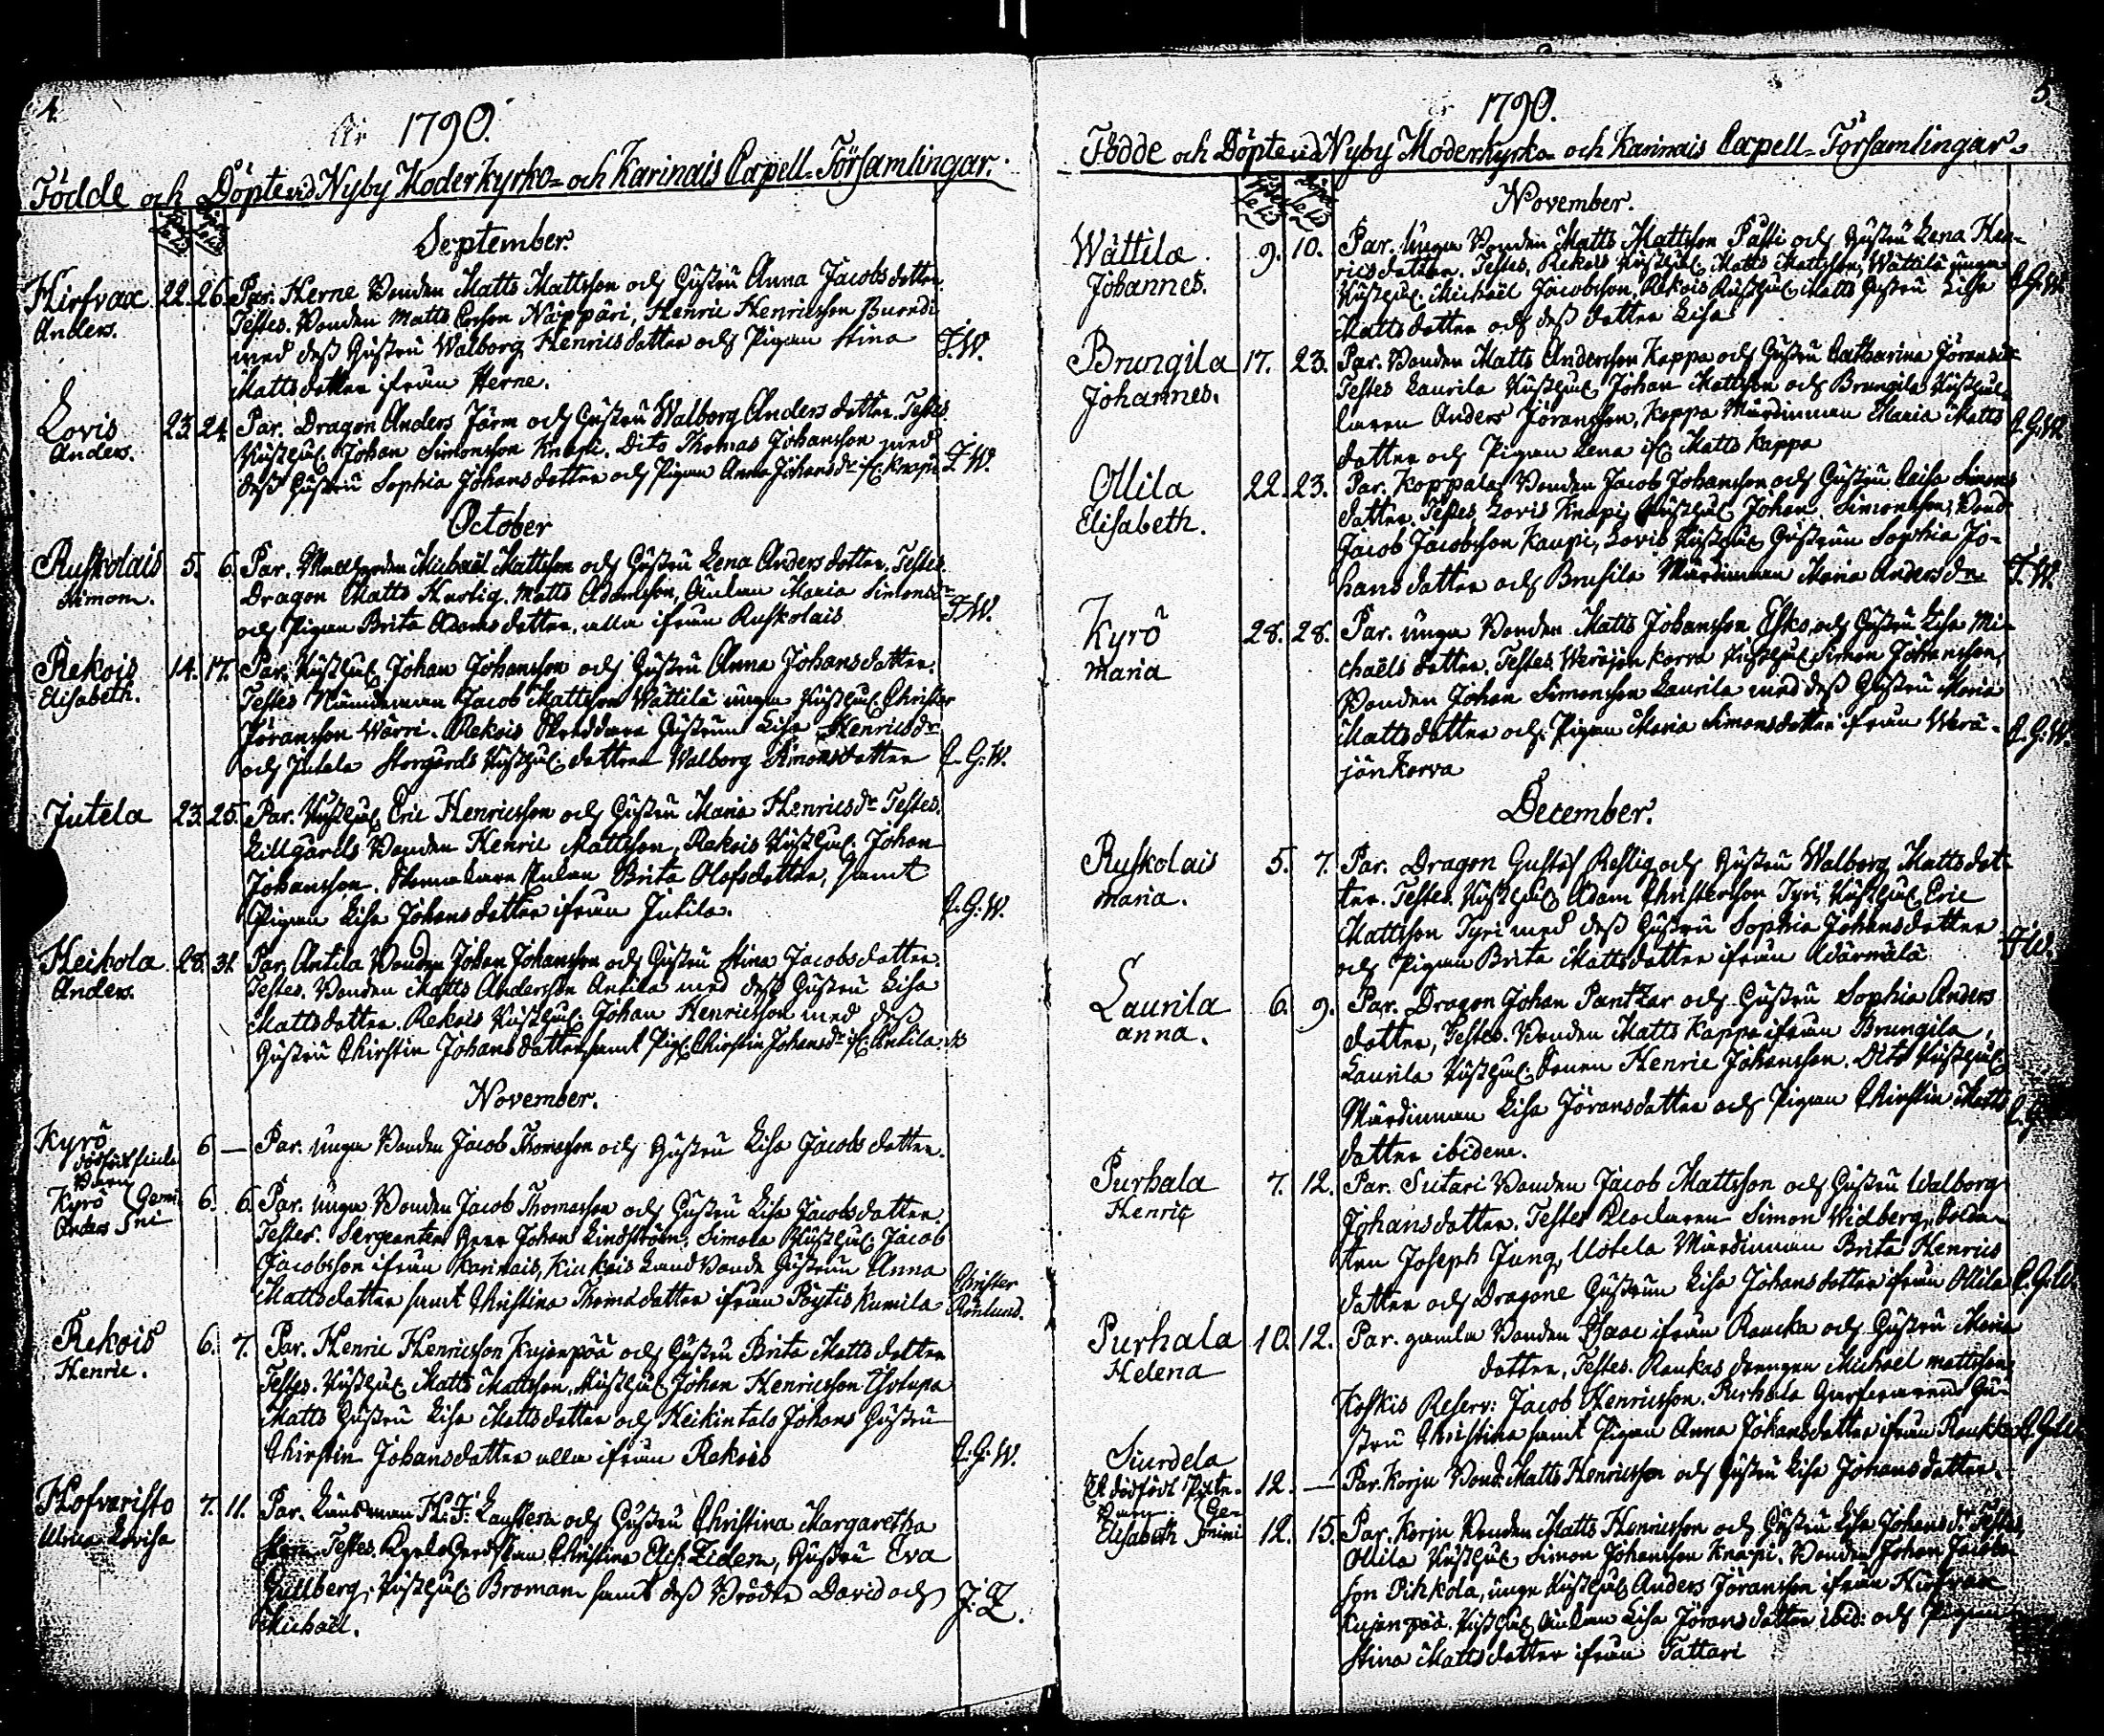 4.
År 1790.
Födde och Döpte vid Nyby Moderkyrko- och Karinais Capell-Församlingar.
September.
Hirfvax 22. 26. Par. Herne Bonden Matts Mattsson och Hustru Anna Jacobs dotter.
Anders. Testes. Bonden Matts Näppäri, Henric Henricsson
med dess Hustru Walborg Henricsdotter och Pigan Stina J.W.
Mattsdotter ifrån Herne.
Lovis 23. 24. Par. Dragon Anders Järn och Hustru Walborg Anders dotter. Testes
Anders. Rusth. Johan Simonsson Knapi. Dito Thomas Johansson med
dess Hustru Sophia Johansdotter och Pigan Anna Johansdr. ifr. Knapi J.W.
October
Ruskolais 5. 6. Par. Michaël Mattsson och Hustru Lena Anders dotter, Testes.
Simon. Dragon Matts Hurtig. Matts Adamsson, Enkan Maria Simonsdr
och Pigan Brita Adams dotter. alla ifrån Ruskolais J.W.
Rekois 14. 17. Par. Rusth. Johan Johansson och Hustru Anna Johansdotter.
Elisabeth. Testes Nämndeman Jacob Mattsson Wättilä unga Rusth. Christer
Jöransson Wärri. Rekois Skräddare Hustrun Lisa Henricsdr
och Jutela Storgårds Rusth. dottren Walborg Simonsdotter C.G.W.
Jutela 23. 25. Par. Rusth. Eric Henricsson och Hustru Maria Henricsdr. Testes.
Lillgårds Bonden Henric Mattsson, Rekois Rusth. Johan
Johansson. Enkan Brita Olofsdotter, samt
Pigan Lisa Johansdotter ifrån Jutila. C.G.W.
Heikola 28. 31. Par. Antila Bonden Johan Johansson och Hustru Stina Jacobsdotter.
Anders. Testes. Bonden Matts Andersson Antila med dess Hustru Lisa
Mattsdotter. Rekois Rusth. Johan Henricsson med dess
Hustru Chirstin Johansdotter samt Pig. Chirstin Johansdr. ifr. Antila.
November.
Kyrö 6 — Par. unga Bonden Jacob Thomasson och Hustru Lisa Jacobs dotter.
dödfödt
Barn
Kyrö Gemi- 6. 6. Par. unga Bonden Jacob Thomasson och Hustru Lisa Jacobsdotter.
Anders ni Testes. Sergeanten Herr Johan Lindström. Simola Rusth. Jacob
Jacobsson ifrån Karinais, Kiukois Land Bonde Hustrun Anna
Mattsdotter samt Christina Thomædotter ifrån Pöytis Kumila Christer
Rönlund.
Rekois 6. 7. Par. Henric Henricsson Kujanpää och Hustru Brita Matts dotter
Henric. Testes. Rusth. Matts Mattsson, Rusth. Johan Henricsson
Matts Hustru Lisa Mattsdotter och Heikintalo Johans Hustru
Chirstin Johansdotter alla ifrån Rekois C.G.W.
Hofvaristo 7. 11. Par. Länsman H.F. Laustern och Hustru Christina Margaretha
Ulrica Lovisa Testes. Christina Elis. Zidern, Hustru Eva
Gullberg, Rusth. Broman samt dess Bröder David och J.Z.
Michaël.
5.
År 1790.
Födde och Döpte vid Nyby Moderkyrko- och Karinais Capell-Församlingar
November.
Wättilä 9. 10. Par. unga Bonden Matts Mattsson Pässi och Hustru Lena Hen-
Johannes. ricsdotter. Testes, Rekois Rusth. Matts Mattsson, Wättilä unga
Rusth. Michaël Jacobsson, Rekois Rusth. Matts Hustru Lisa C.G.W.
Mattsdotter och dess dotter Lisa
Brungila 17. 23. Par. Bonden Matts Andersson Kappa och Hustru Catharina Jöransdr
Johannes. Testes Laurila Rusth. Johan Mattsson och Brungila Rusthål-
laren Anders Jöransson, Kappa Värdinnan Maria Matts C.G.W.
dotter och Pigan Lena if. Matts Kappa
Ollila 22. 23. Par. Koppala Bonden Jacob Johansson och Hustru Caisa Simons
Elisabeth. dotter. Testes Lovis Knapi Rusth. Johan Simonsson, Bond.
Jacob Jacobsson Kaupi, Lovis Rusth. Hustrun Sophia Jo-
hansdotter och Brusila Värdinnan Maria Andersdr. J.W.
Kyrö 28. 28. Par. unga Bonden Matts Johansson Esko och Hustru Lisa Mi-
Maria chaëls dotter. Testes, Weräjän korva Rusth. Simon Johansson,
Bonden Johan Simonsson Laurila med dess Hustru Maria
Mattsdotter och Pigan Maria Simonsdotter ifrån Werä- C.G.W.
jänkorva
December.
Ruskolais 5. 7. Par. Dragon Gustaf Restig och Hustru Walborg Mattsdot-
Maria. ter. Testes. Rusth. Adam Christersson Tyri, Rusth. Eric
Mattsson Tyri med dess Hustru Sophia Johansdotter J.W.
och Pigan Brita Mattsdotter ifrån
Laurila 6. 9. Par. Dragon Johan Pantzar och Hustru Sophia Anders
anna. dotter, Testes. Bonden Matts Kappa ifrån Brungila,
Laurila Rusth. Sonen Henric Johansson. Dito Rusth.
Värdinnan Lisa Jöransdotter och Pigan Chirstin Matts
dotter ibidem.
Purhala 7. 12. Par. Sutari Bonden Jacob Mattsson och Hustru Walborg
Henric Johansdotter. Testes Klockaren Simon Widberg, Solda-
ten Joseph Jung, Uotela Värdinnan Brita Henrics
dotter och Dragone Hustrun Lisa Johansdotter ifrån Ollila C.G.W.
Purhala 10. 12. Par. gamla Bonden Isaac ifrån Raucka och Hustru Maria
Helena dotter, Testes. Raukas drengen Michaël Mattsson,
Koskis Reserv: Jacob Henricsson. Purhala Hu-
stru Christina samt Pigan Anna Johansdotter ifrån Raukka C.G.W.
Siurdela
Ett dödfödt 12. — Par. Korju Bond. Matts Henricsson och Hustru Lisa Johansdotter.
Barn Ge-
Elisabeth mini 12. 15. Par. Korju Bonden Matts Henricsson och Hustru Lisa Johansdr. Testes,
Ollila Rusth. Simon Johansson Knapi. Bonden Johan Jacobs-
son Pihkola, unge Rusth. Anders Jöransson ifrån Hirfvax
Kujanpää. Rusth. Enkan Lisa Jöransdotter ibid: och Pigan
Stina Mattsdotter ifrån Tattari